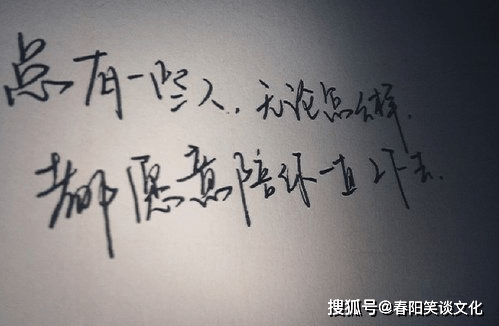 总有一些人,无论怎么样.
都愿意陪你一直走下去.
搜狐号@春阳笑谈文化